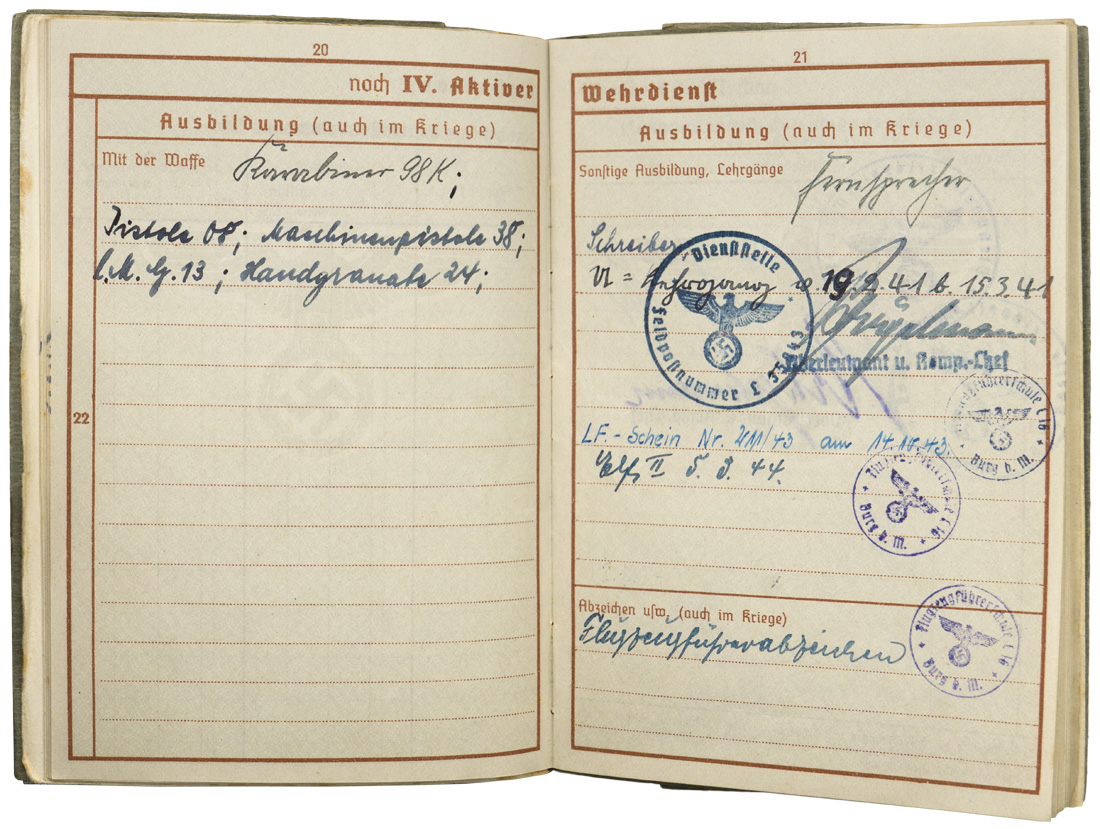 20
noch IV. Aktiver
Ausbildung (auch im Kriege)
Mit der Waffe Karabiner 98K;
Pistole 08; Maschinenpistole 38;
l.M.G.13; Handgranate 24;
22
21
Wehrdienst
Ausbildung (auch im Kriege)
Sonstige Ausbildung, Lehrgänge Fernsprecher
Schreiber
Dienststelle
Feldpostnummer L
= Lehrgang v. 19.2.41 b. 15.3.41
Oberleutnant u. Komp.-Chef
LF.-Schein Nr. 211/43 am
II 5.3.44.
Burg b. M.
Burg b. M.
Abzeichen usw. (auch im Kriege)
Flugzeugführerabzeichen
Flugzeugführerschule C 16
Burg b. M.